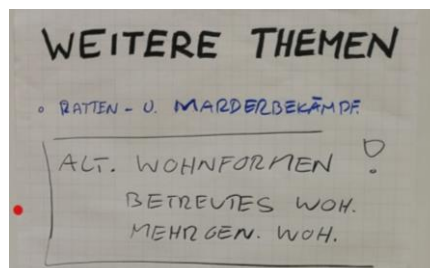 WEITERE THEMEN
• RATTEN- U. MARDERBEKÄMPF.
ALT. WOHNFORMEN !
BETREUTES WOH.
MEHRGEN. WOH.